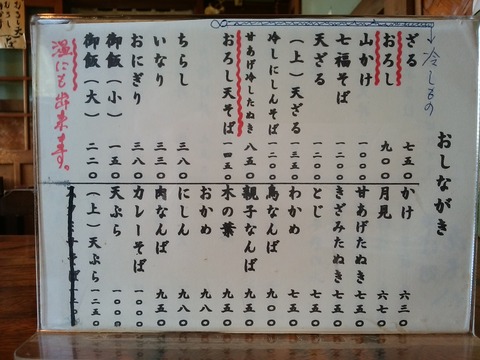 おしながき
冷しもの
ざる 七五〇
おろし 九〇〇
山かけ 一〇〇〇
七福そば 一一〇〇
天ざる 一二〇〇
(上)天ざる 一三五〇
冷しにしんそば 一二〇〇
甘あげ冷したぬき 八五〇
おろし天そば 一四五〇
ちらし 三八〇
いなり 三三〇
おにぎり 三八〇
御飯(小) 一五〇
御飯(大) 二二〇
温にも出来ます。
かけ 六三〇
月見 六七〇
甘あげたぬき 七五〇
きざみたぬき 七五〇
とじ 七五〇
わかめ 七五〇
鳥なんば 九五〇
親子なんば 九五〇
木の葉 九五〇
おかめ 九八〇
にしん 九八〇
肉なんば 九五〇
カレーそば 一〇〇〇
天ぷら 一〇〇〇
(上)天ぷら 一二五〇